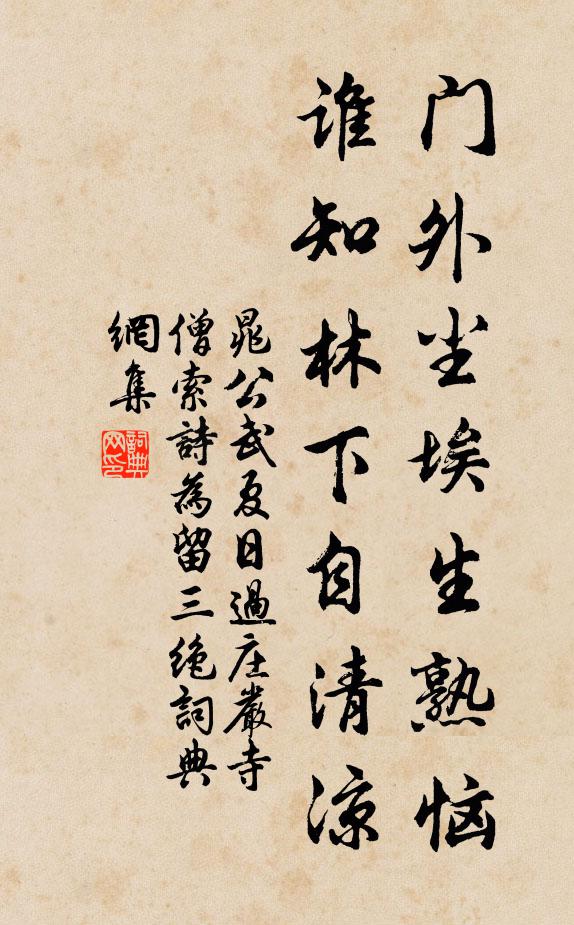 门外尘埃生熟恼
谁知林下自清凉
晁公武夏日過庄嚴寺
僧索詩為留三绝詞典
網集
詞典
网印